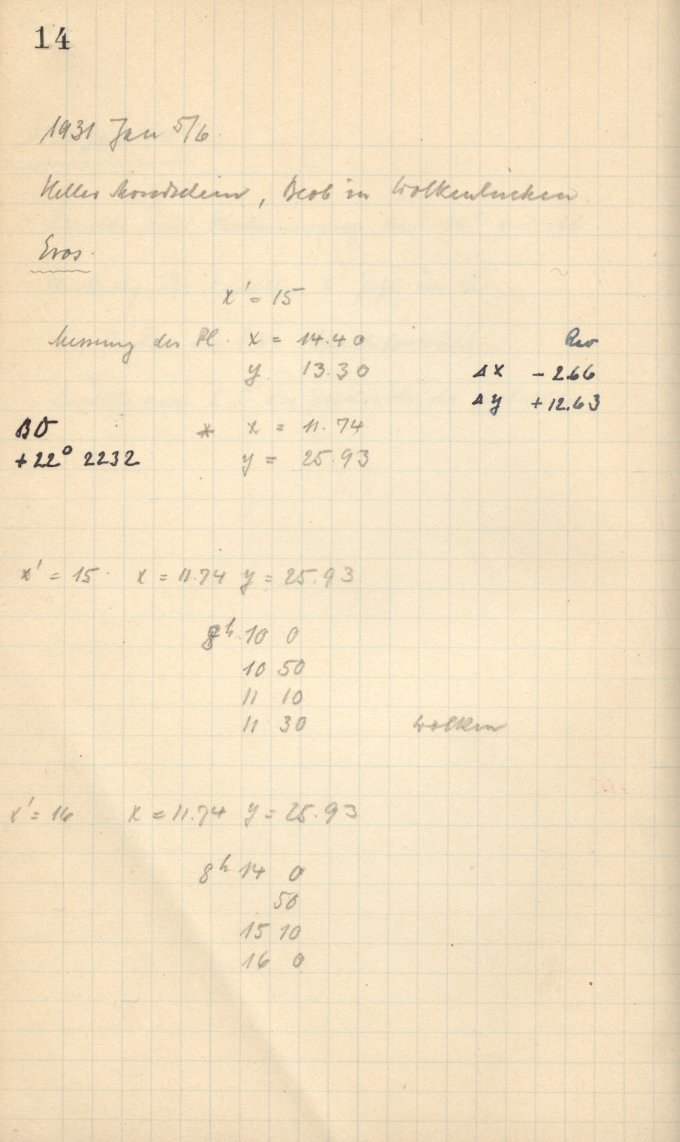 14
1931 Jan 5/6
Heller Mondschein, Beob in Wolkenlücken
Eros.
x' = 15
Messung des Pl. x = 14.40 Rev
y 13.30 Δx - 2.66
Δy + 12.63
BD * x = 11.74
+22° 2232 y = 25.93
x' = 15 x = 11.74 y = 25.93
8h 10 0
10 50
11 10
11 30 Wolken
x' = 16 x = 11.74 y = 25.93
8h 14 0
50
15 10
16 0